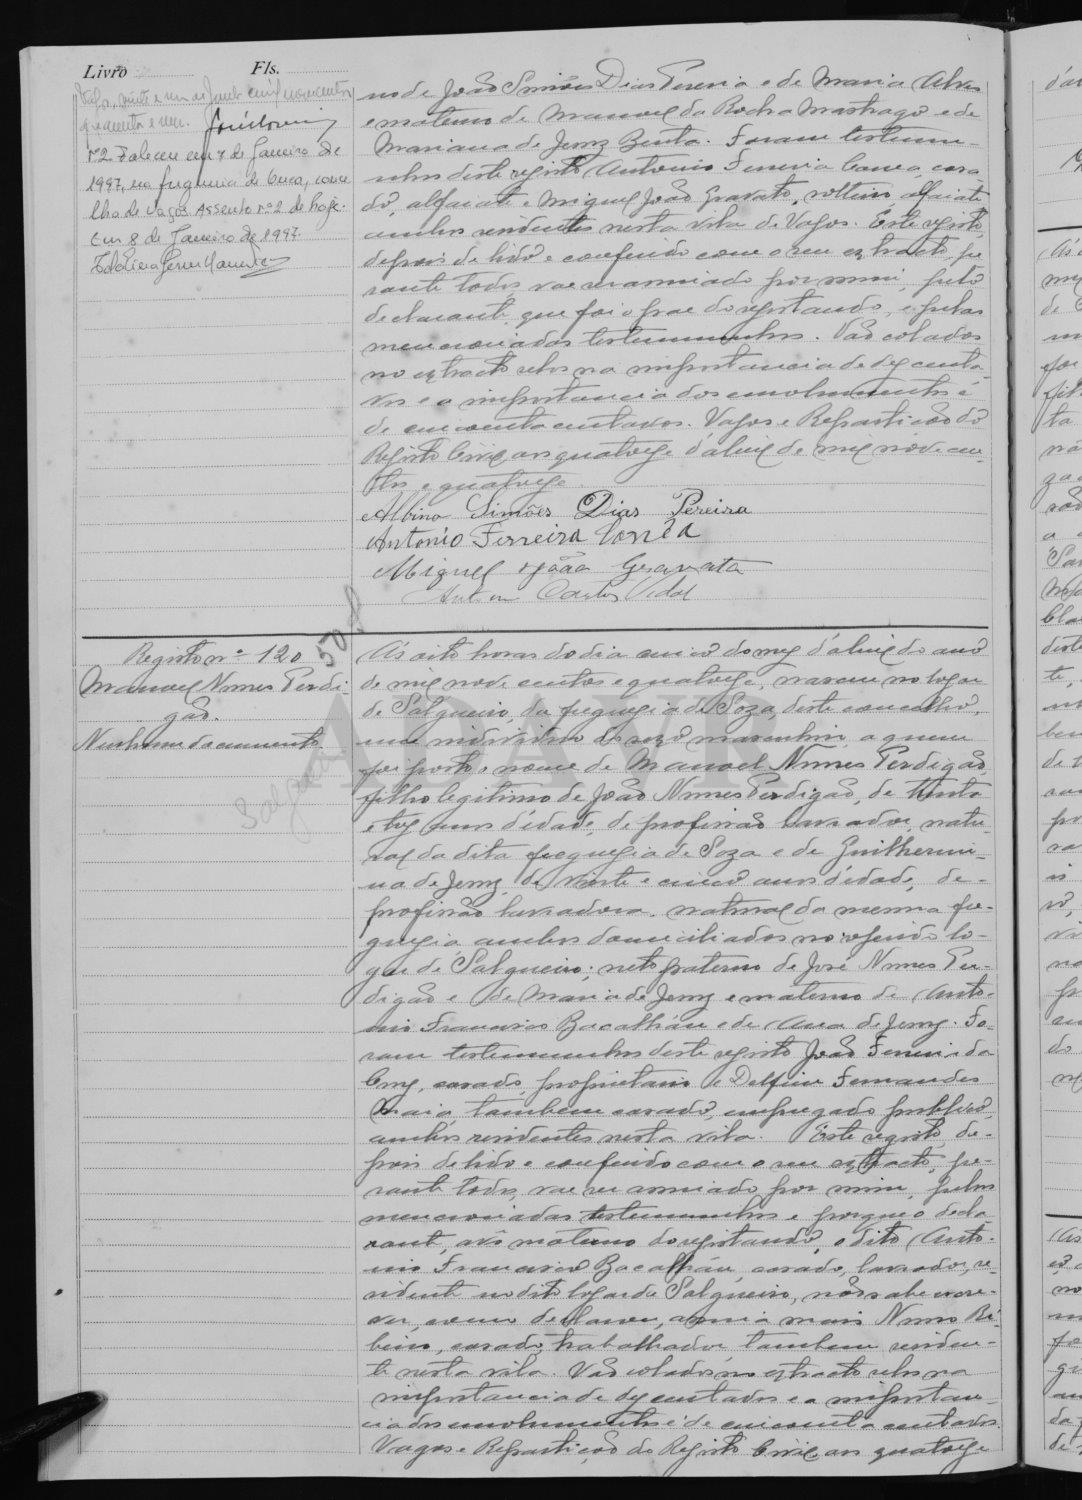 Livro Fls.
Vagos, vinte e um de Junho de mil novecentos
e um.
nº2 Faleceu em 7 de Janeiro de
1997, na freguesia de Ouca, conce
lho de Vagos. Assento nº 2 de hoje.
Em 8 de Janeiro de 1997.
no de João Simões Dias Pereira e de Maria Alves
e materno de Manuel da Rocha Martnago e de
Mariana de Jesus Bento. Foram testemu-
nhas deste registo Antonio Ferreira Correa, casa
do, alfaiate e Miguel João Gravato, solteiro, alfaiate
ambos residentes nesta vila de Vagos. Este registo,
depois de lido e conferido com o seu extracto, pe
rante todos vae ser assinado por mim, pelo
declarante, que foi o pae do registando, e pelas
mencionadas testemunhas. Vão colados
no extracto selos na importancia de dez centa-
vos e a importancia dos emolumentos é
de cincoenta centavos. Vagos e Repartição do
Registo Civil aos quatorze d'abril de mil novecen-
tos e quatorze.
Albino Simões Dias Pereira
Antonio Ferreira Corrêa
Miguel João Gravato
Antonio Carlos Vidal
Registo nº 120
50
Manoel Nunes Perdi-
gão.
Nenhum documento.
Salgueiro
Ás oito horas do dia cinco do mez d'abril do ano
de mil nove centos e quatorze, nasceu no logar
de Salgueiro, da freguezia de Soza, deste concelho,
um individuo do sexo masculino, a quem
foi posto o nome de Manoel Nunes Perdigão,
filho legitimo de João Nunes Perdigão, de trinta
e trez anos d'edade, de profissão lavrador, natu-
ral da dita freguezia de Soza e de Guilhermi-
na de Jesus, de vinte e cinco anos d'edade, de
profissão lavradora, natural da mesma fre-
guezia, ambos domiciliados no referido lo-
gar de Salgueiro; neto paterno de José Nunes Per-
digão e de Maria de Jesus e materno de Anto-
nio Francisco Bacalháu e de Ana de Jesus. Fo-
ram testemunhas deste registo João Ferreira da
Cruz, casado, proprietario e Delfim Fernandes
Maia, tambem casado, empregado publico,
ambos residentes nesta vila. Este registo, de-
pois de lido e conferido com o seu extracto, pe-
rante todos, vae ser assinado por mim, pelas
mencionadas testemunhas e porque o decla
rante, avô materno do registando, o dito Anto-
nio Francisco Bacalháu, casado, lavrador, re-
sidente no dito logar de Salgueiro, não sabe escre-
ver, como declarou, assina mais Nuno Ri-
beiro, casado, trabalhador, tambem residen-
te nesta vila. Vão colados no extracto selos na
importancia de dez centavos e a importan-
cia dos emolumentos é de cincoenta centavos.
Vagos e Repartição do Registo Civil aos quatorze